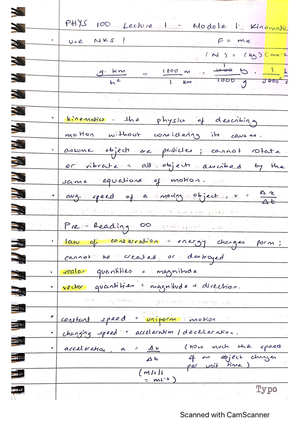 PHYS 100 Lecture 1 - Module 1: Kinematic
• use MKS!    F = ma
(N) = (kg)(ms-2
g. km / h² = 1000 m / 1 km . kg / 1000 g . 1 h
• kinematics - the physics of describing
motion without considering its causes.
• assume object are particles ; cannot rotate
or vibrate = all objects described by the
same equations of motion.
• avg. speed of a moving object, v = Δx / Δt
Pre - Reading 00
• law of conservation = energy changes form ;
cannot be created or destroyed
• scalar quantities = magnitude
• vector quantities = magnitude + direction.
• constant speed = uniform motion
• changing speed = acceleration / deceleration.
• acceleration, a = Δv / Δt (how much the speed
of an object changes
per unit time)
(m/s/s
= ms⁻²)
Typo
Scanned with CamScanner